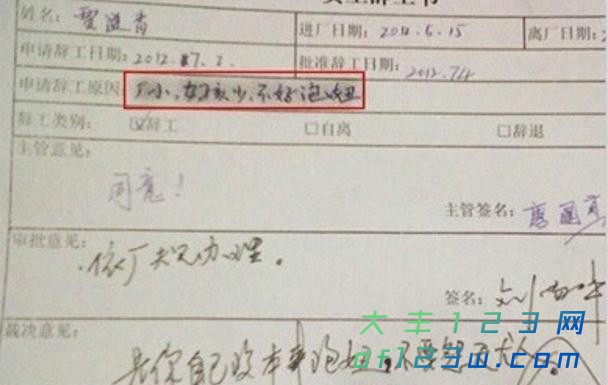 员工辞工书
姓名: 
进厂日期: 2011.6.15 离厂日期:
申请辞工日期: 2012.7.2. 批准辞工日期: 2012.7.4
申请辞工原因: 厂小、女孩少、不好泡妞
辞工类别: ☑辞工 □自离 □辞退
主管意见:
同意!
主管签名:
审批意见:
依厂规办理。
签名:
裁决意见:
是你自己没本事泡妞,不要怨天尤人
大丰123网
df123w.com